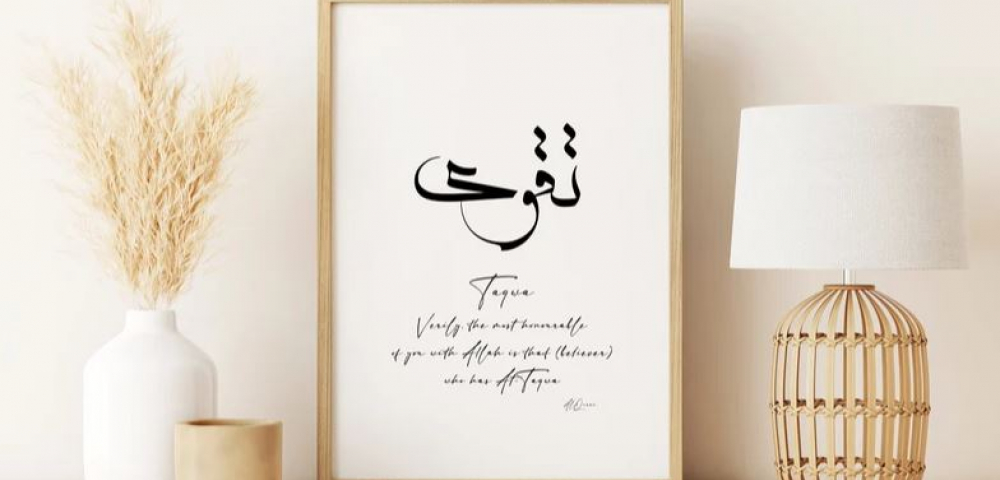 تقوى
Taqwa
Verily, the most honourable
of you with Allah is that (believer)
who has At-Taqwa
Al Quran